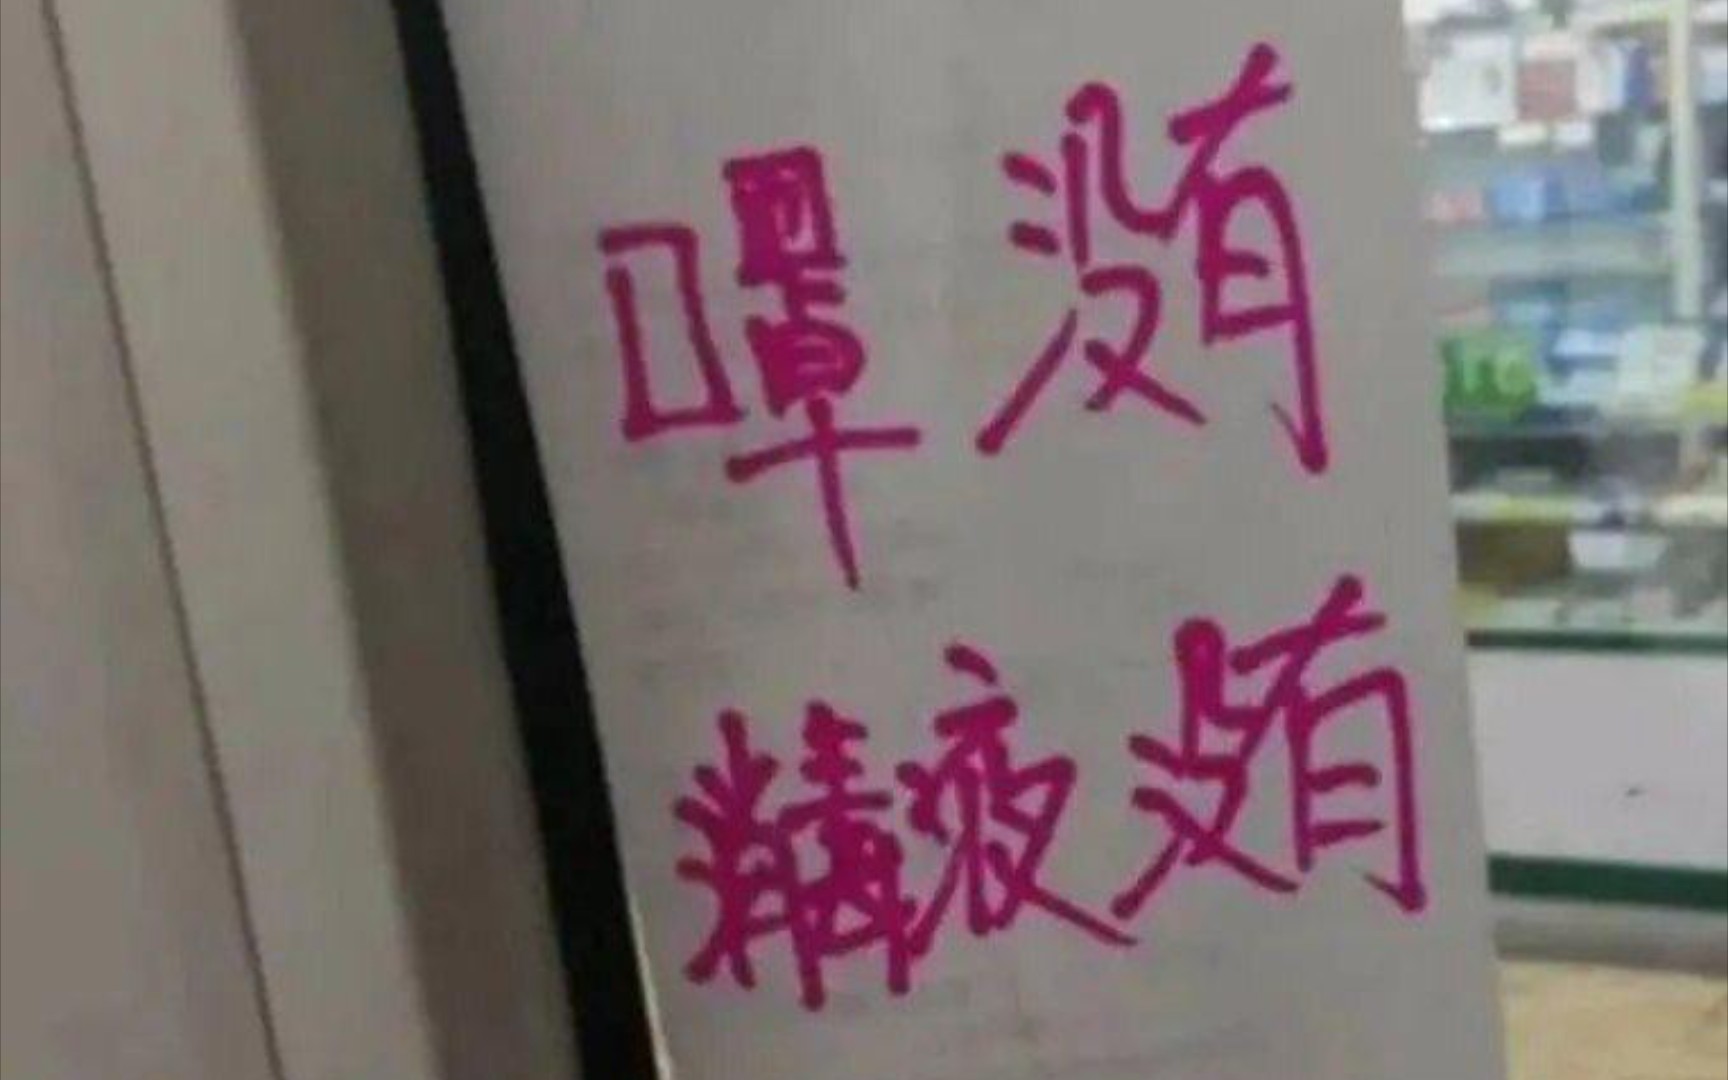 口罩没有
精液没有